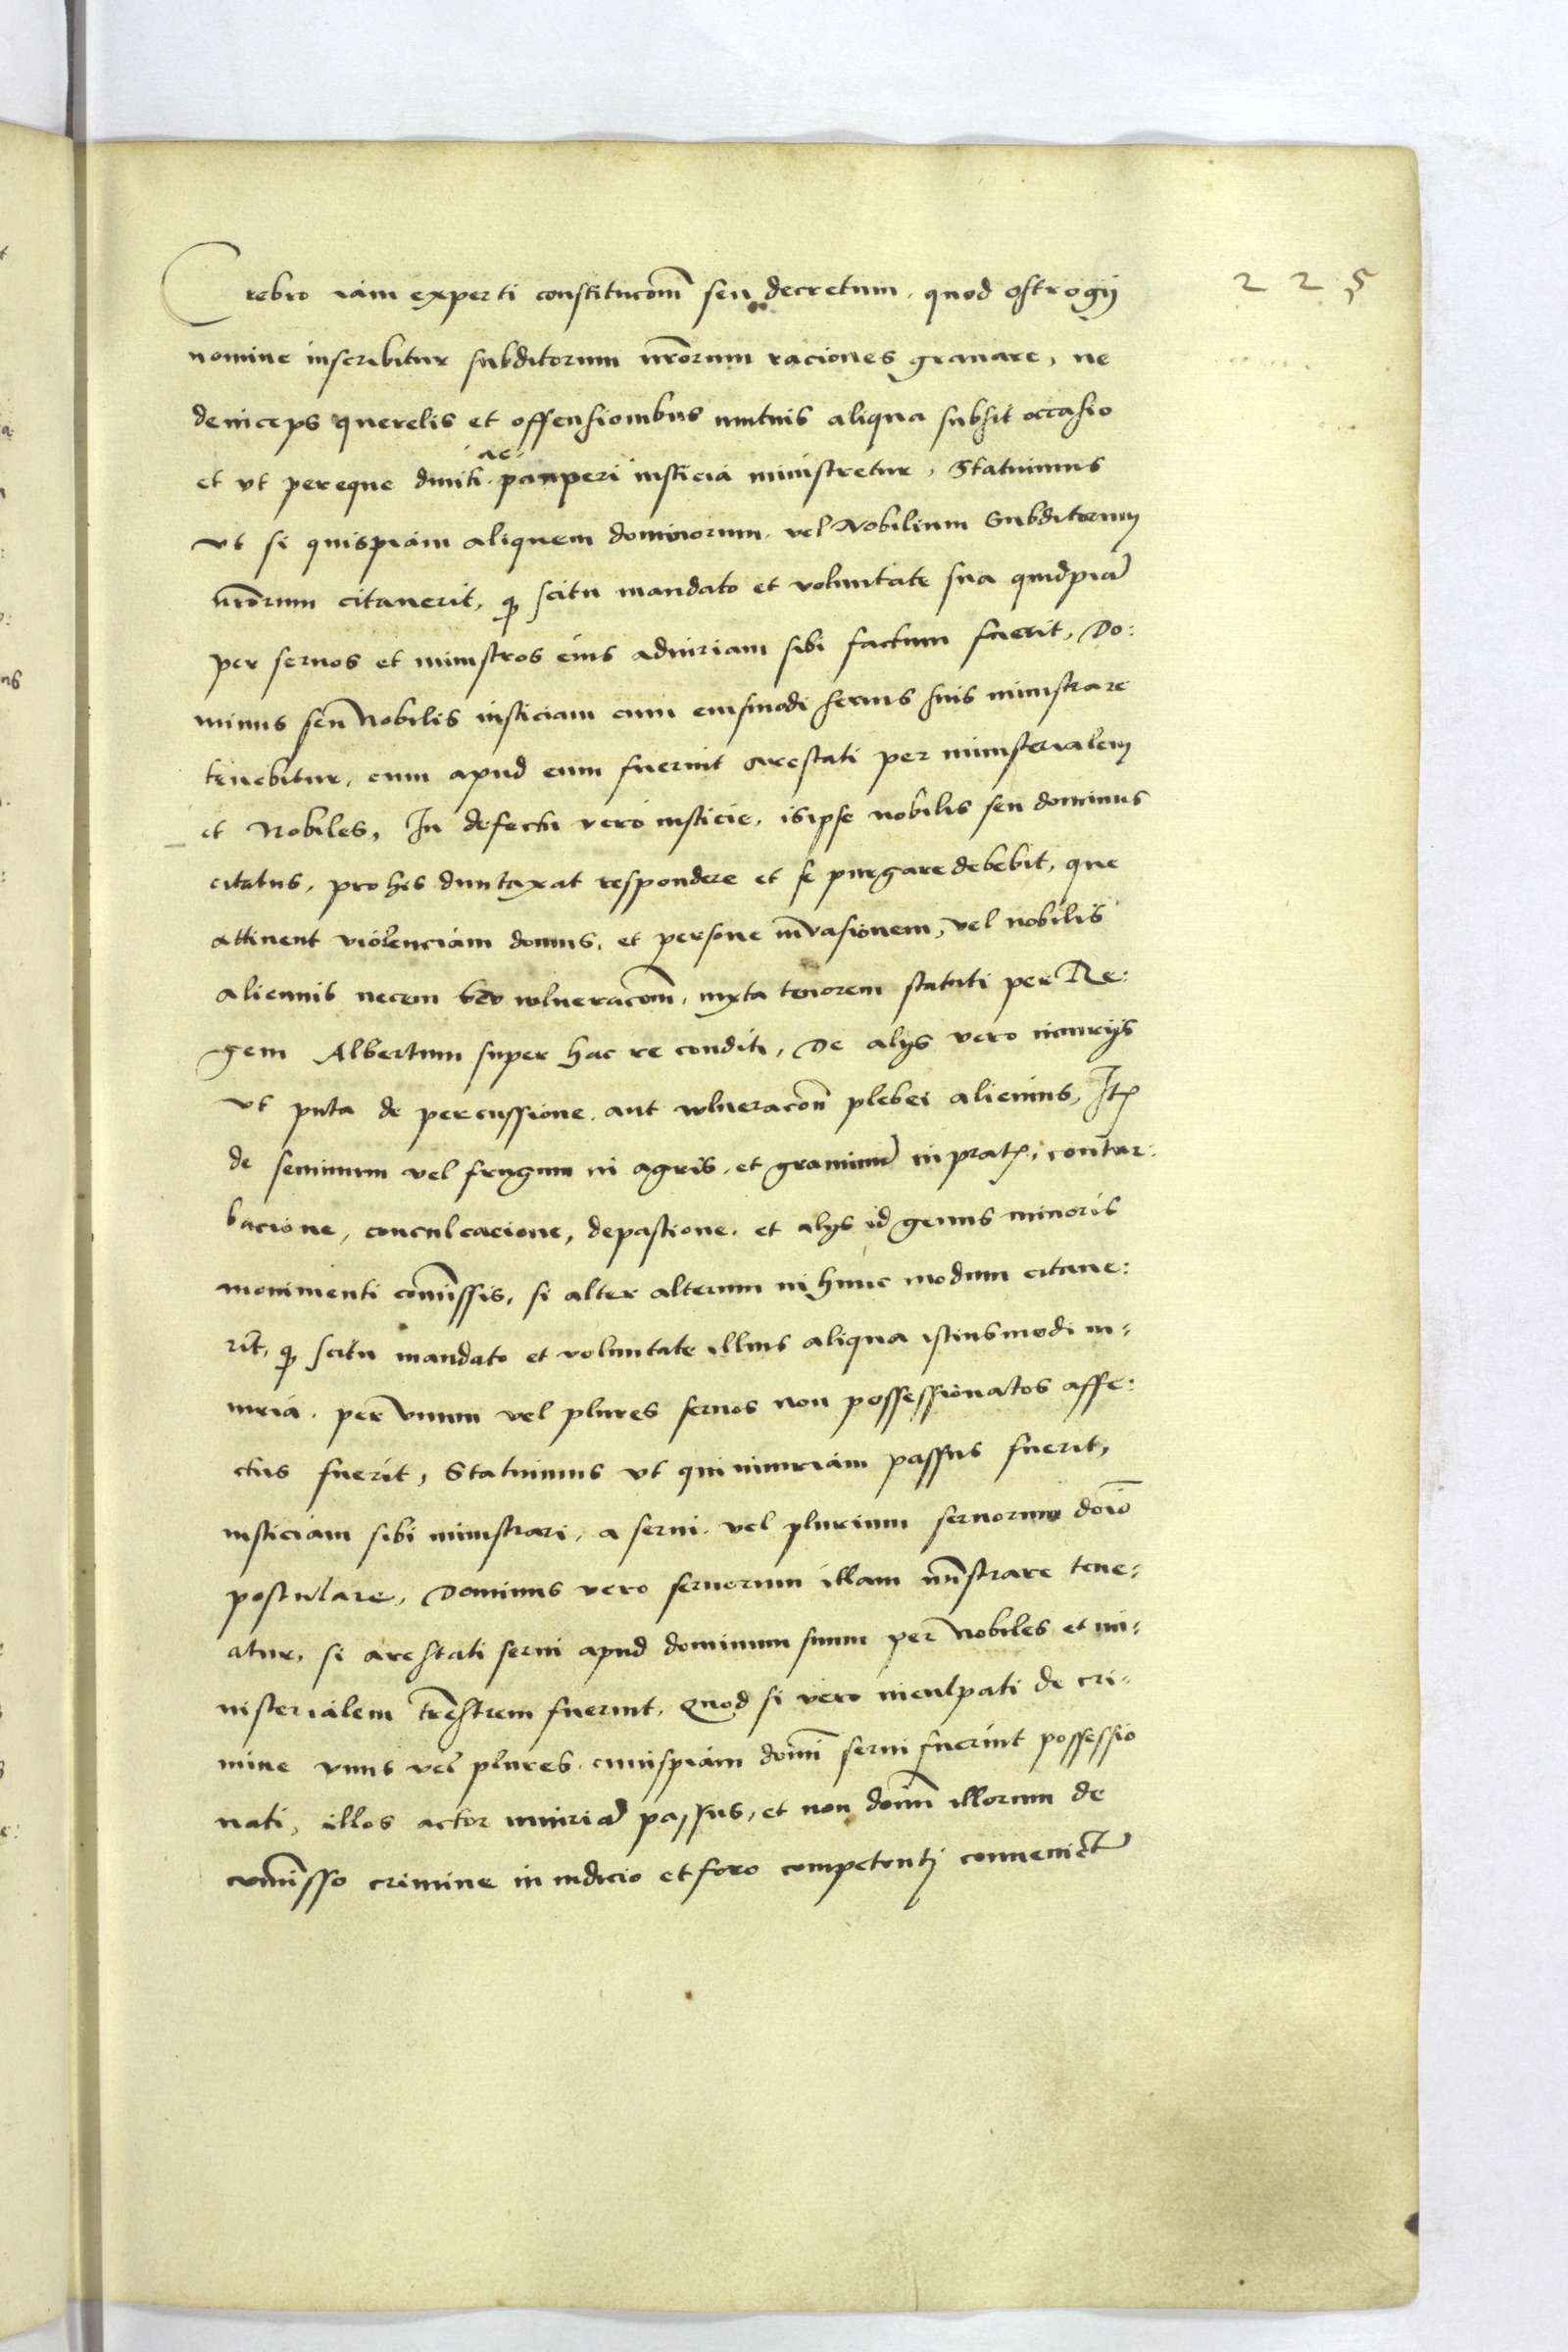 Crebro iam experti constitucom̄ seu decretum, quod ostrogij
225
nomine inscribitur subditorum nr̄orum raciones grauare, ne
deniceps querelis et offensionibus mutuis aliqua subsit occasio
ac
et vt pereque diuiti pauperi iusticia ministretur, Statuimus
vt si quispiam aliquem dominorum vel Nobilium Subditorum
nr̄orum citauerit, ꝙ scitu mandato et voluntate sua quidpiā
per seruos et ministros eius adiniriam sibi factum fuerit, Do:
minus seu Nobilis iusticiam cum eiusmodi seruis suis ministrare
tenebitur, cum apud eum fuerint arestati per ministerialem
et Nobiles, In defectu vero iusticie, is ipse nobilis seu dominus
citatus, pro his duntaxat respondere et se purgare debebit, que
attinent violenciam domus, et persone invasionem, vel nobilis
alicuius necem vulneracom̄, iuxta tenorem statuti per Re:
gem Albertum super hac re conditi, De alijs vero iniurijs
vt puta de percussione aut vulneracom̄ plebei alicuius, Itꝭ
de seminum vel frugum in agris, et graminū in pratꝭ, contur:
bacione, conculcacione, depastione, et alijs id genus minoris
monimenti com̄issis, si alter alterum in hunc modum citaue:
rit, ꝙ scitu mandato et voluntate illius aliqua istiusmodi in:
iuria, per vnum vel plures seruos non possessionatos affe:
ctus fuerit, Statuimus vt qui iniuriam passus fuerit,
iusticiam sibi ministrari, a serui vel plurium seruorum doīo
postulare, Dominus vero seruorum illam mīnstrare tene:
atur, si arestati serui apud dominum suum per Nobiles et mi:
nisterialem tr̄estrem fuerint, Quod si vero inculpati de cri:
mine vnus vel plures cuiuspiam domī serui fuerint possessio
nati, illos actor iniuriā passus, et non doīm illorum de
com̄isso crimine in iudicio et foro competenti conueniet